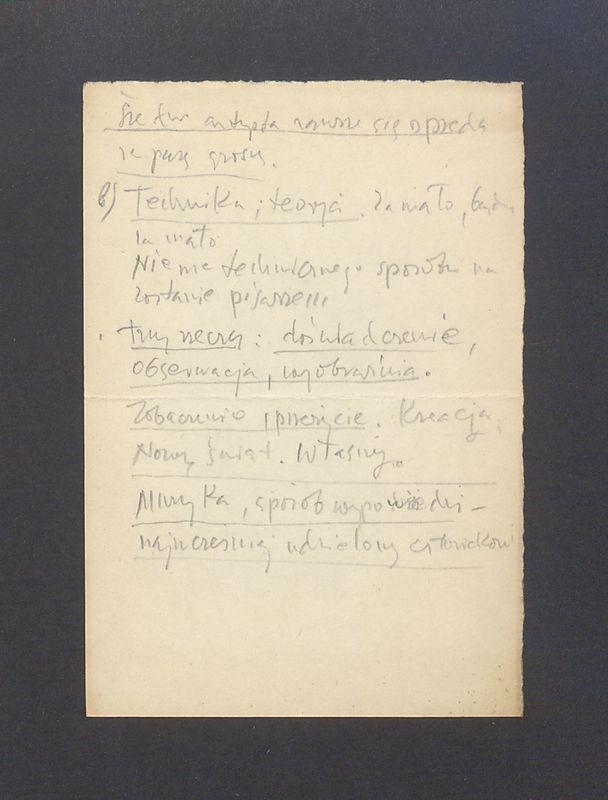 artysta zawsze się sprzeda
za parę groszy.
b) Technika i teorja. Za mało,
za mało
Nie ma technicznego sposobu na
zostanie pisarzem
trzy rzeczy: doświadczenie,
obserwacja, wyobraźnia.
Zobaczenie i przeżycie. Kreacja.
Nowy świat. Własny.
Muzyka, sposób wypowiedzi –
najwcześniej udzielony człowiekowi